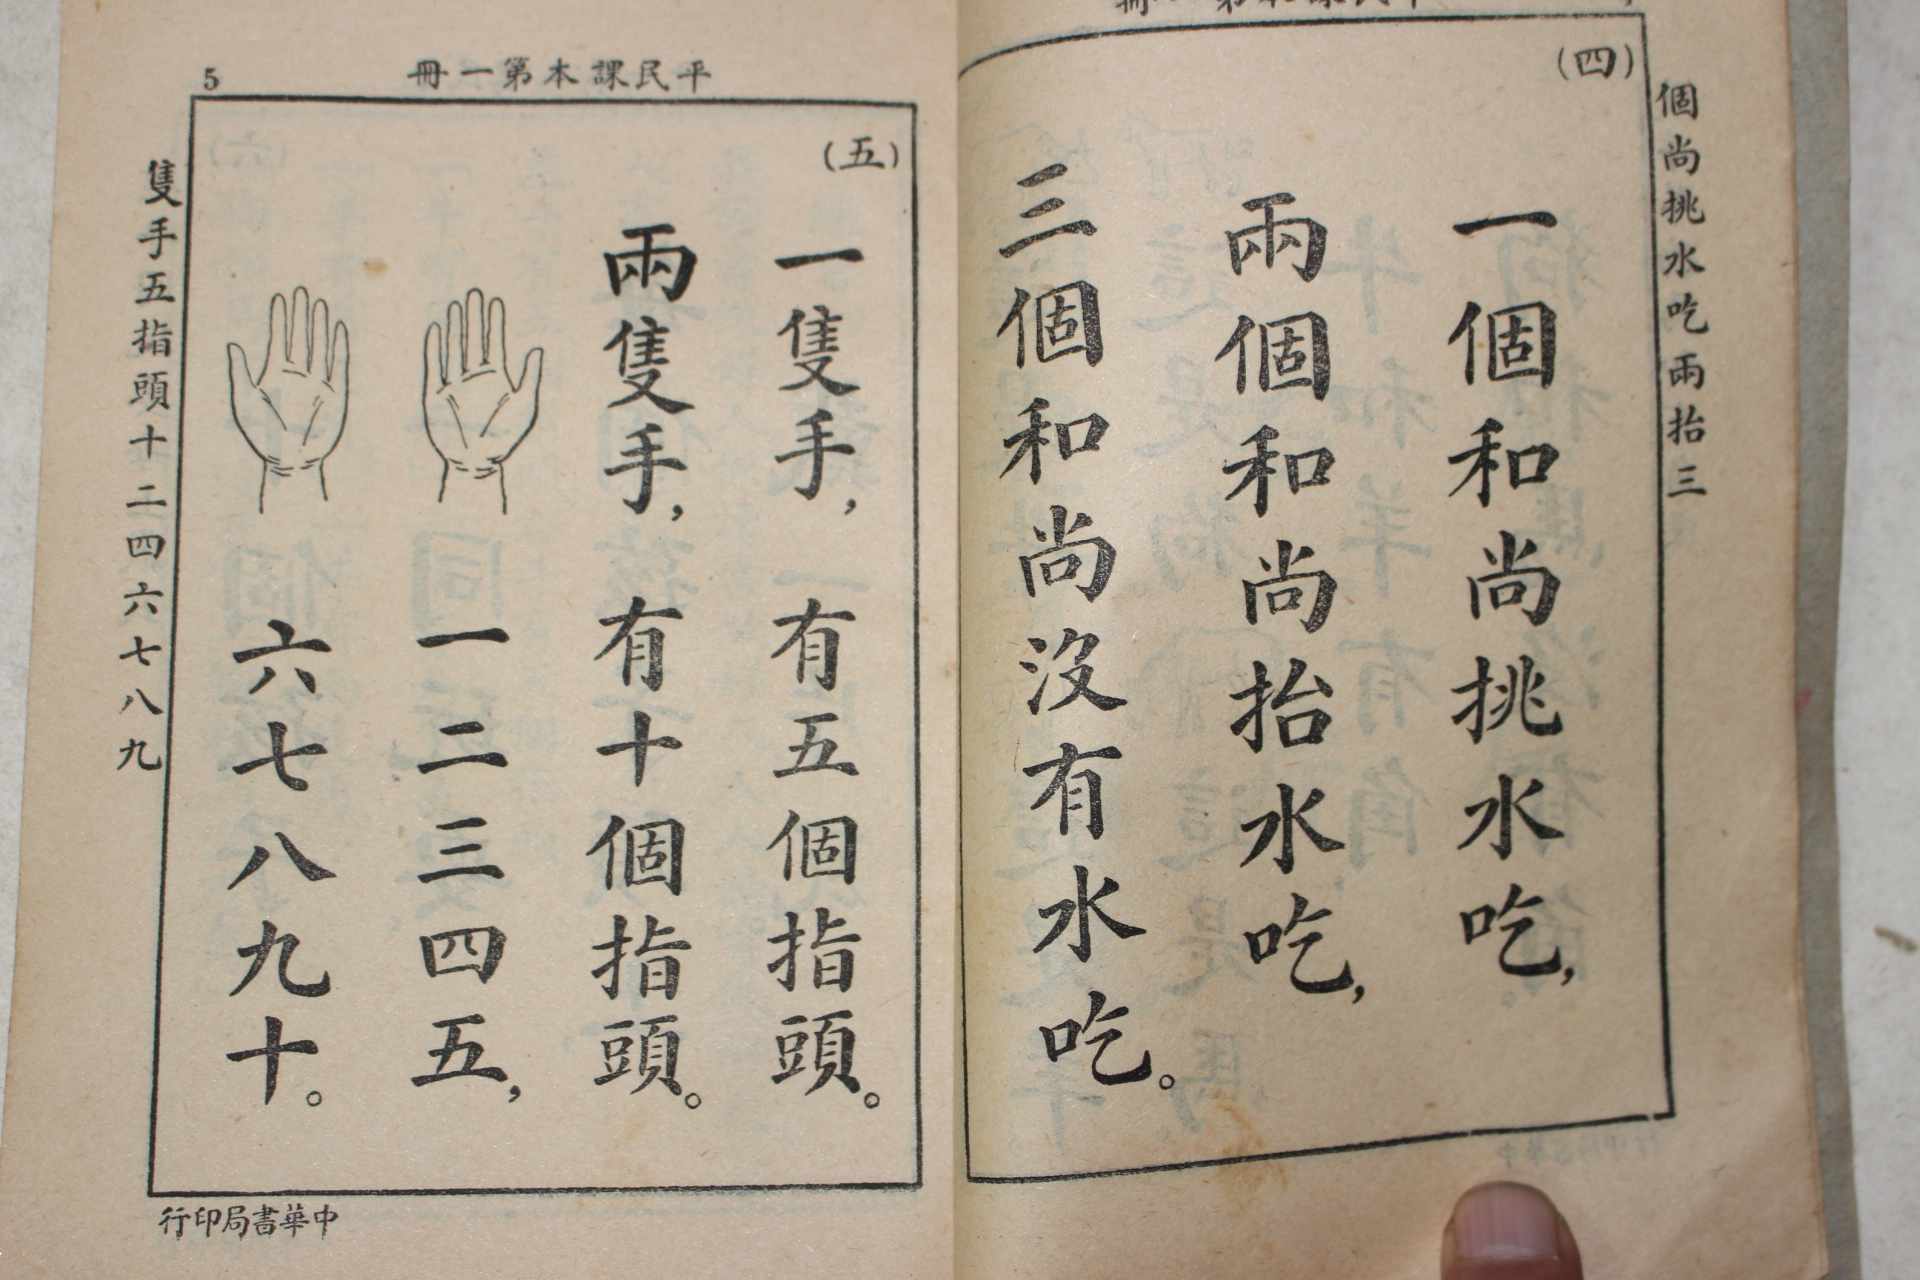 (四)
一個和尚挑水吃，
兩個和尚抬水吃，
三個和尚沒有水吃。
個尚挑水吃兩抬三
平民課本第一冊
5
(五)
一隻手，有五個指頭。
兩隻手，有十個指頭。
一二三四五，
六七八九十。
隻手五指頭十二四六七八九
中華書局印行